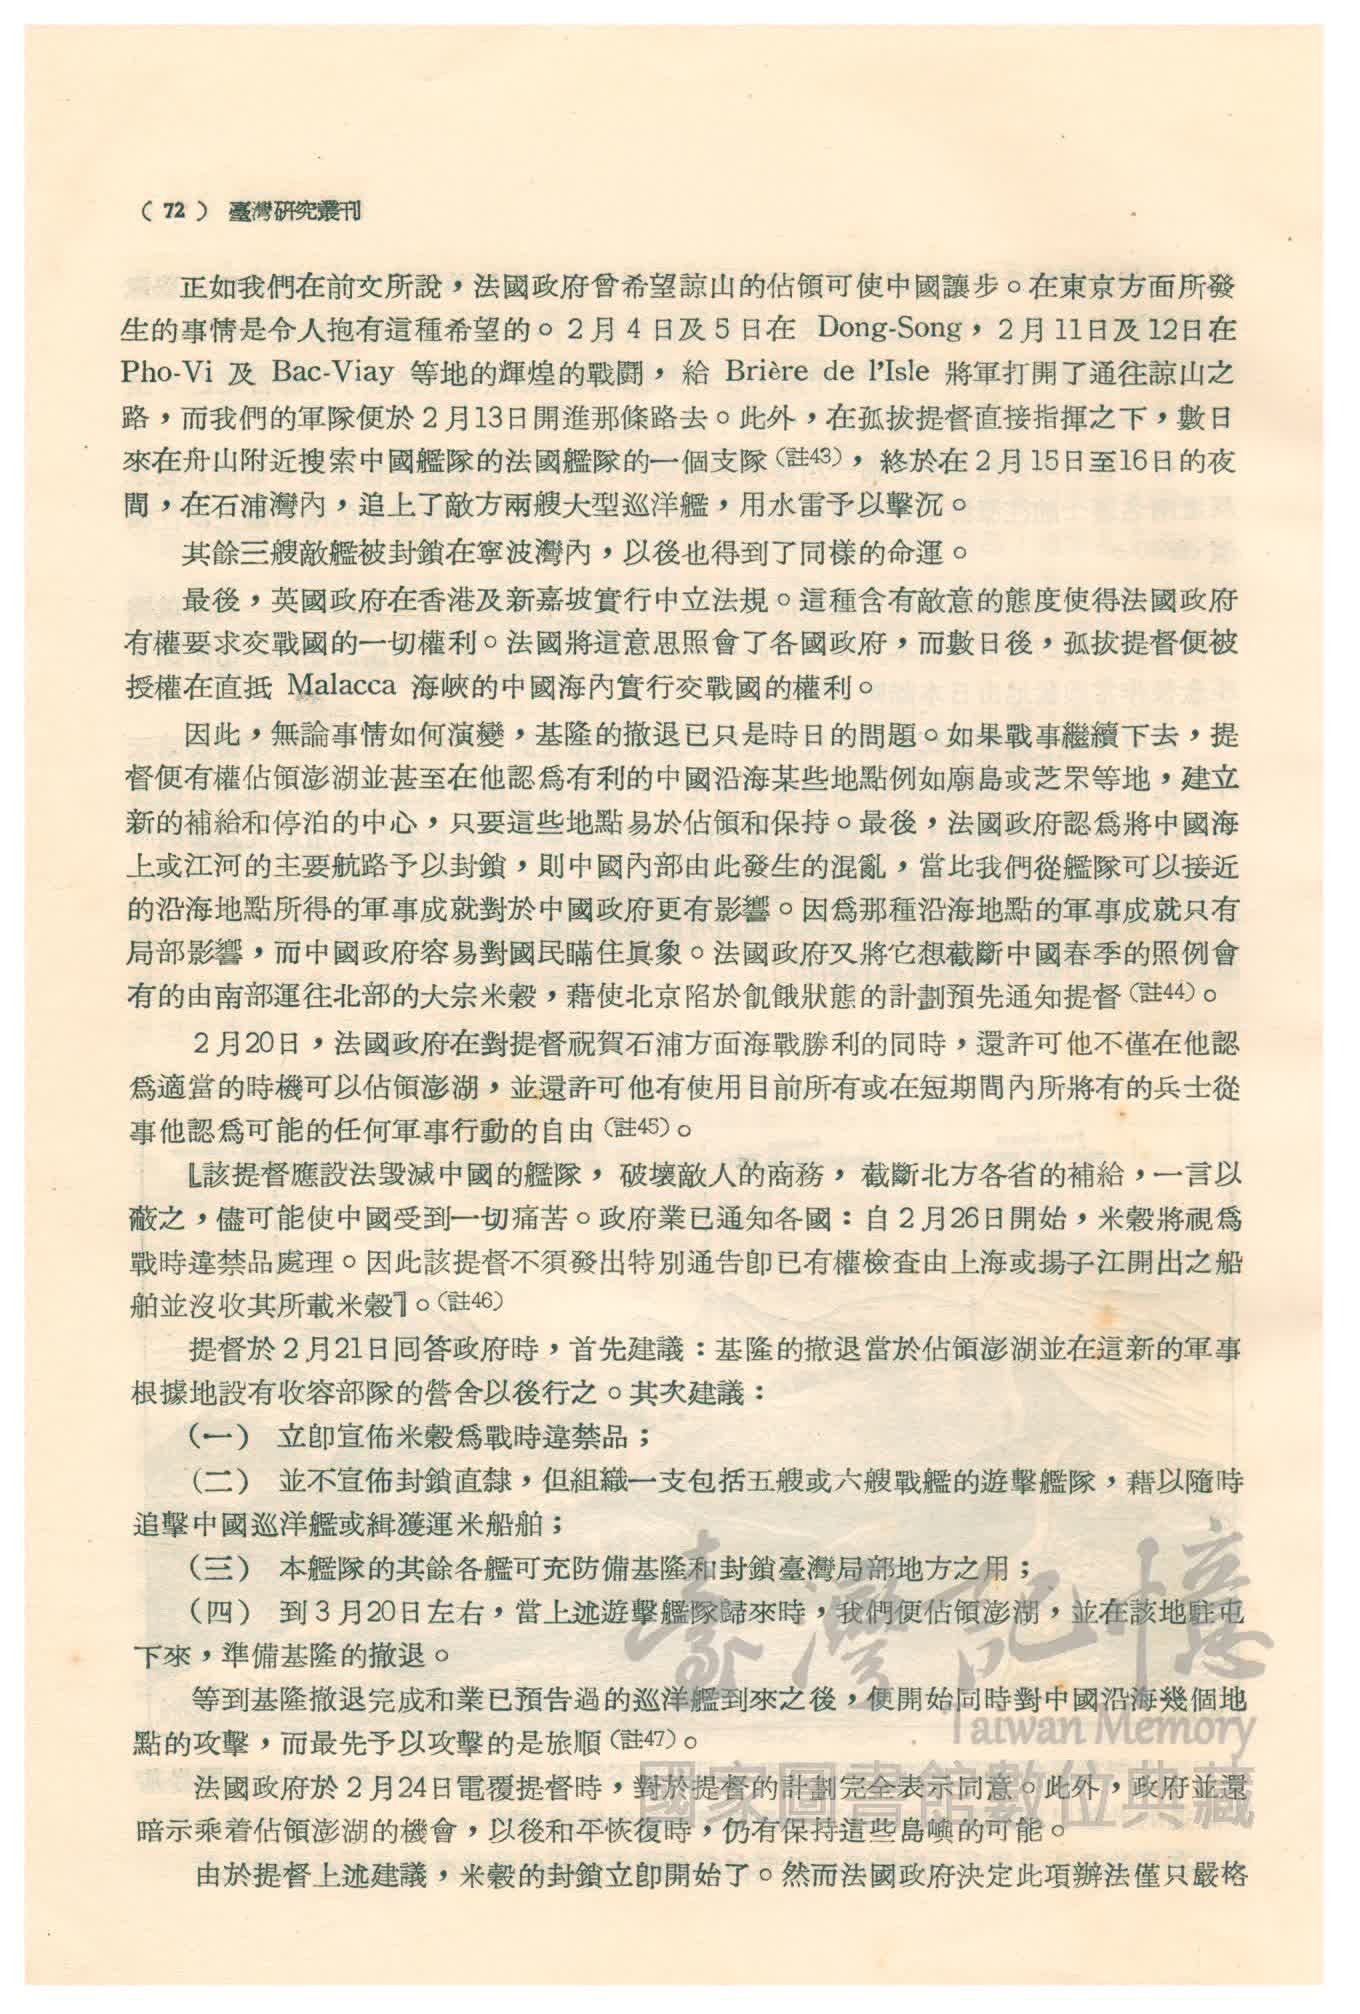 ( 72 ) 臺灣研究叢刊
正如我們在前文所說，法國政府曾希望諒山的佔領可使中國讓步。在東京方面所發
生的事情是令人抱有這種希望的。2月4日及5日在 Dong-Song，2月11日及12日在
Pho-Vi 及 Bac-Viay 等地的輝煌的戰鬪，給 Brière de l'Isle 將軍打開了通往諒山之
路，而我們的軍隊便於2月13日開進那條路去。此外，在孤拔提督直接指揮之下，數日
來在舟山附近搜索中國艦隊的法國艦隊的一個支隊（註43），終於在2月15日至16日的夜
間，在石浦灣內，追上了敵方兩艘大型巡洋艦，用水雷予以擊沉。
其餘三艘敵艦被封鎖在寧波灣內，以後也得到了同樣的命運。
最後，英國政府在香港及新嘉坡實行中立法規。這種含有敵意的態度使得法國政府
有權要求交戰國的一切權利。法國將這意思照會了各國政府，而數日後，孤拔提督便被
授權在直抵 Malacca 海峽的中國海內實行交戰國的權利。
因此，無論事情如何演變，基隆的撤退已只是時日的問題。如果戰事繼續下去，提
督便有權佔領澎湖並甚至在他認爲有利的中國沿海某些地點例如廟島或芝罘等地，建立
新的補給和停泊的中心，只要這些地點易於佔領和保持。最後，法國政府認爲將中國海
上或江河的主要航路予以封鎖，則中國內部由此發生的混亂，當比我們從艦隊可以接近
的沿海地點所得的軍事成就對於中國政府更有影響。因爲那種沿海地點的軍事成就只有
局部影響，而中國政府容易對國民瞞住眞象。法國政府又將它想截斷中國春季的照例會
有的由南部運往北部的大宗米穀，藉使北京陷於飢餓狀態的計劃預先通知提督（註44）。
2月20日，法國政府在對提督祝賀石浦方面海戰勝利的同時，還許可他不僅在他認
爲適當的時機可以佔領澎湖，並還許可他有使用目前所有或在短期間內所將有的兵士從
事他認爲可能的任何軍事行動的自由（註45）。
『該提督應設法毀滅中國的艦隊，破壞敵人的商務，截斷北方各省的補給，一言以
蔽之，儘可能使中國受到一切痛苦。政府業已通知各國：自2月26日開始，米穀將視爲
戰時違禁品處理。因此該提督不須發出特別通告卽已有權檢查由上海或揚子江開出之船
舶並沒收其所載米穀』。（註46）
提督於2月21日回答政府時，首先建議：基隆的撤退當於佔領澎湖並在這新的軍事
根據地設有收容部隊的營舍以後行之。其次建議：
（一） 立卽宣佈米穀爲戰時違禁品；
（二） 並不宣佈封鎖直隸，但組織一支包括五艘或六艘戰艦的遊擊艦隊，藉以隨時
追擊中國巡洋艦或緝獲運米船舶；
（三） 本艦隊的其餘各艦可充防備基隆和封鎖臺灣局部地方之用；
（四） 到3月20日左右，當上述遊擊艦隊歸來時，我們便佔領澎湖，並在該地駐屯
下來，準備基隆的撤退。
等到基隆撤退完成和業已預告過的巡洋艦到來之後，便開始同時對中國沿海幾個地
點的攻擊，而最先予以攻擊的是旅順（註47）。
法國政府於2月24日電覆提督時，對於提督的計劃完全表示同意。此外，政府並還
暗示乘着佔領澎湖的機會，以後和平恢復時，仍有保持這些島嶼的可能。
由於提督上述建議，米穀的封鎖立卽開始了。然而法國政府決定此項辦法僅只嚴格
臺灣記憶
Taiwan Memory
國家圖書館數位典藏